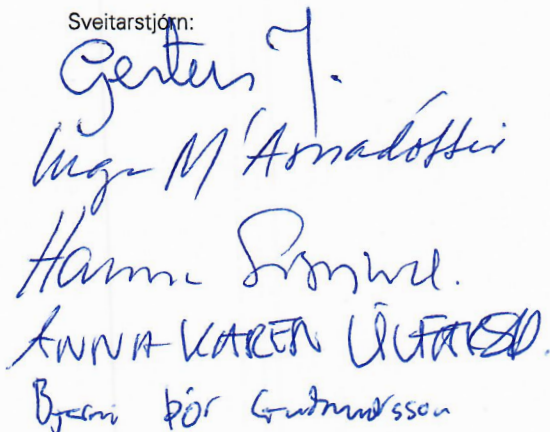 Sveitarstjórn:
J.
Inga M Árnadóttir
Hanna
ANNA KAREN ÚLFARSD.
Bjarni Þór Guðmundsson